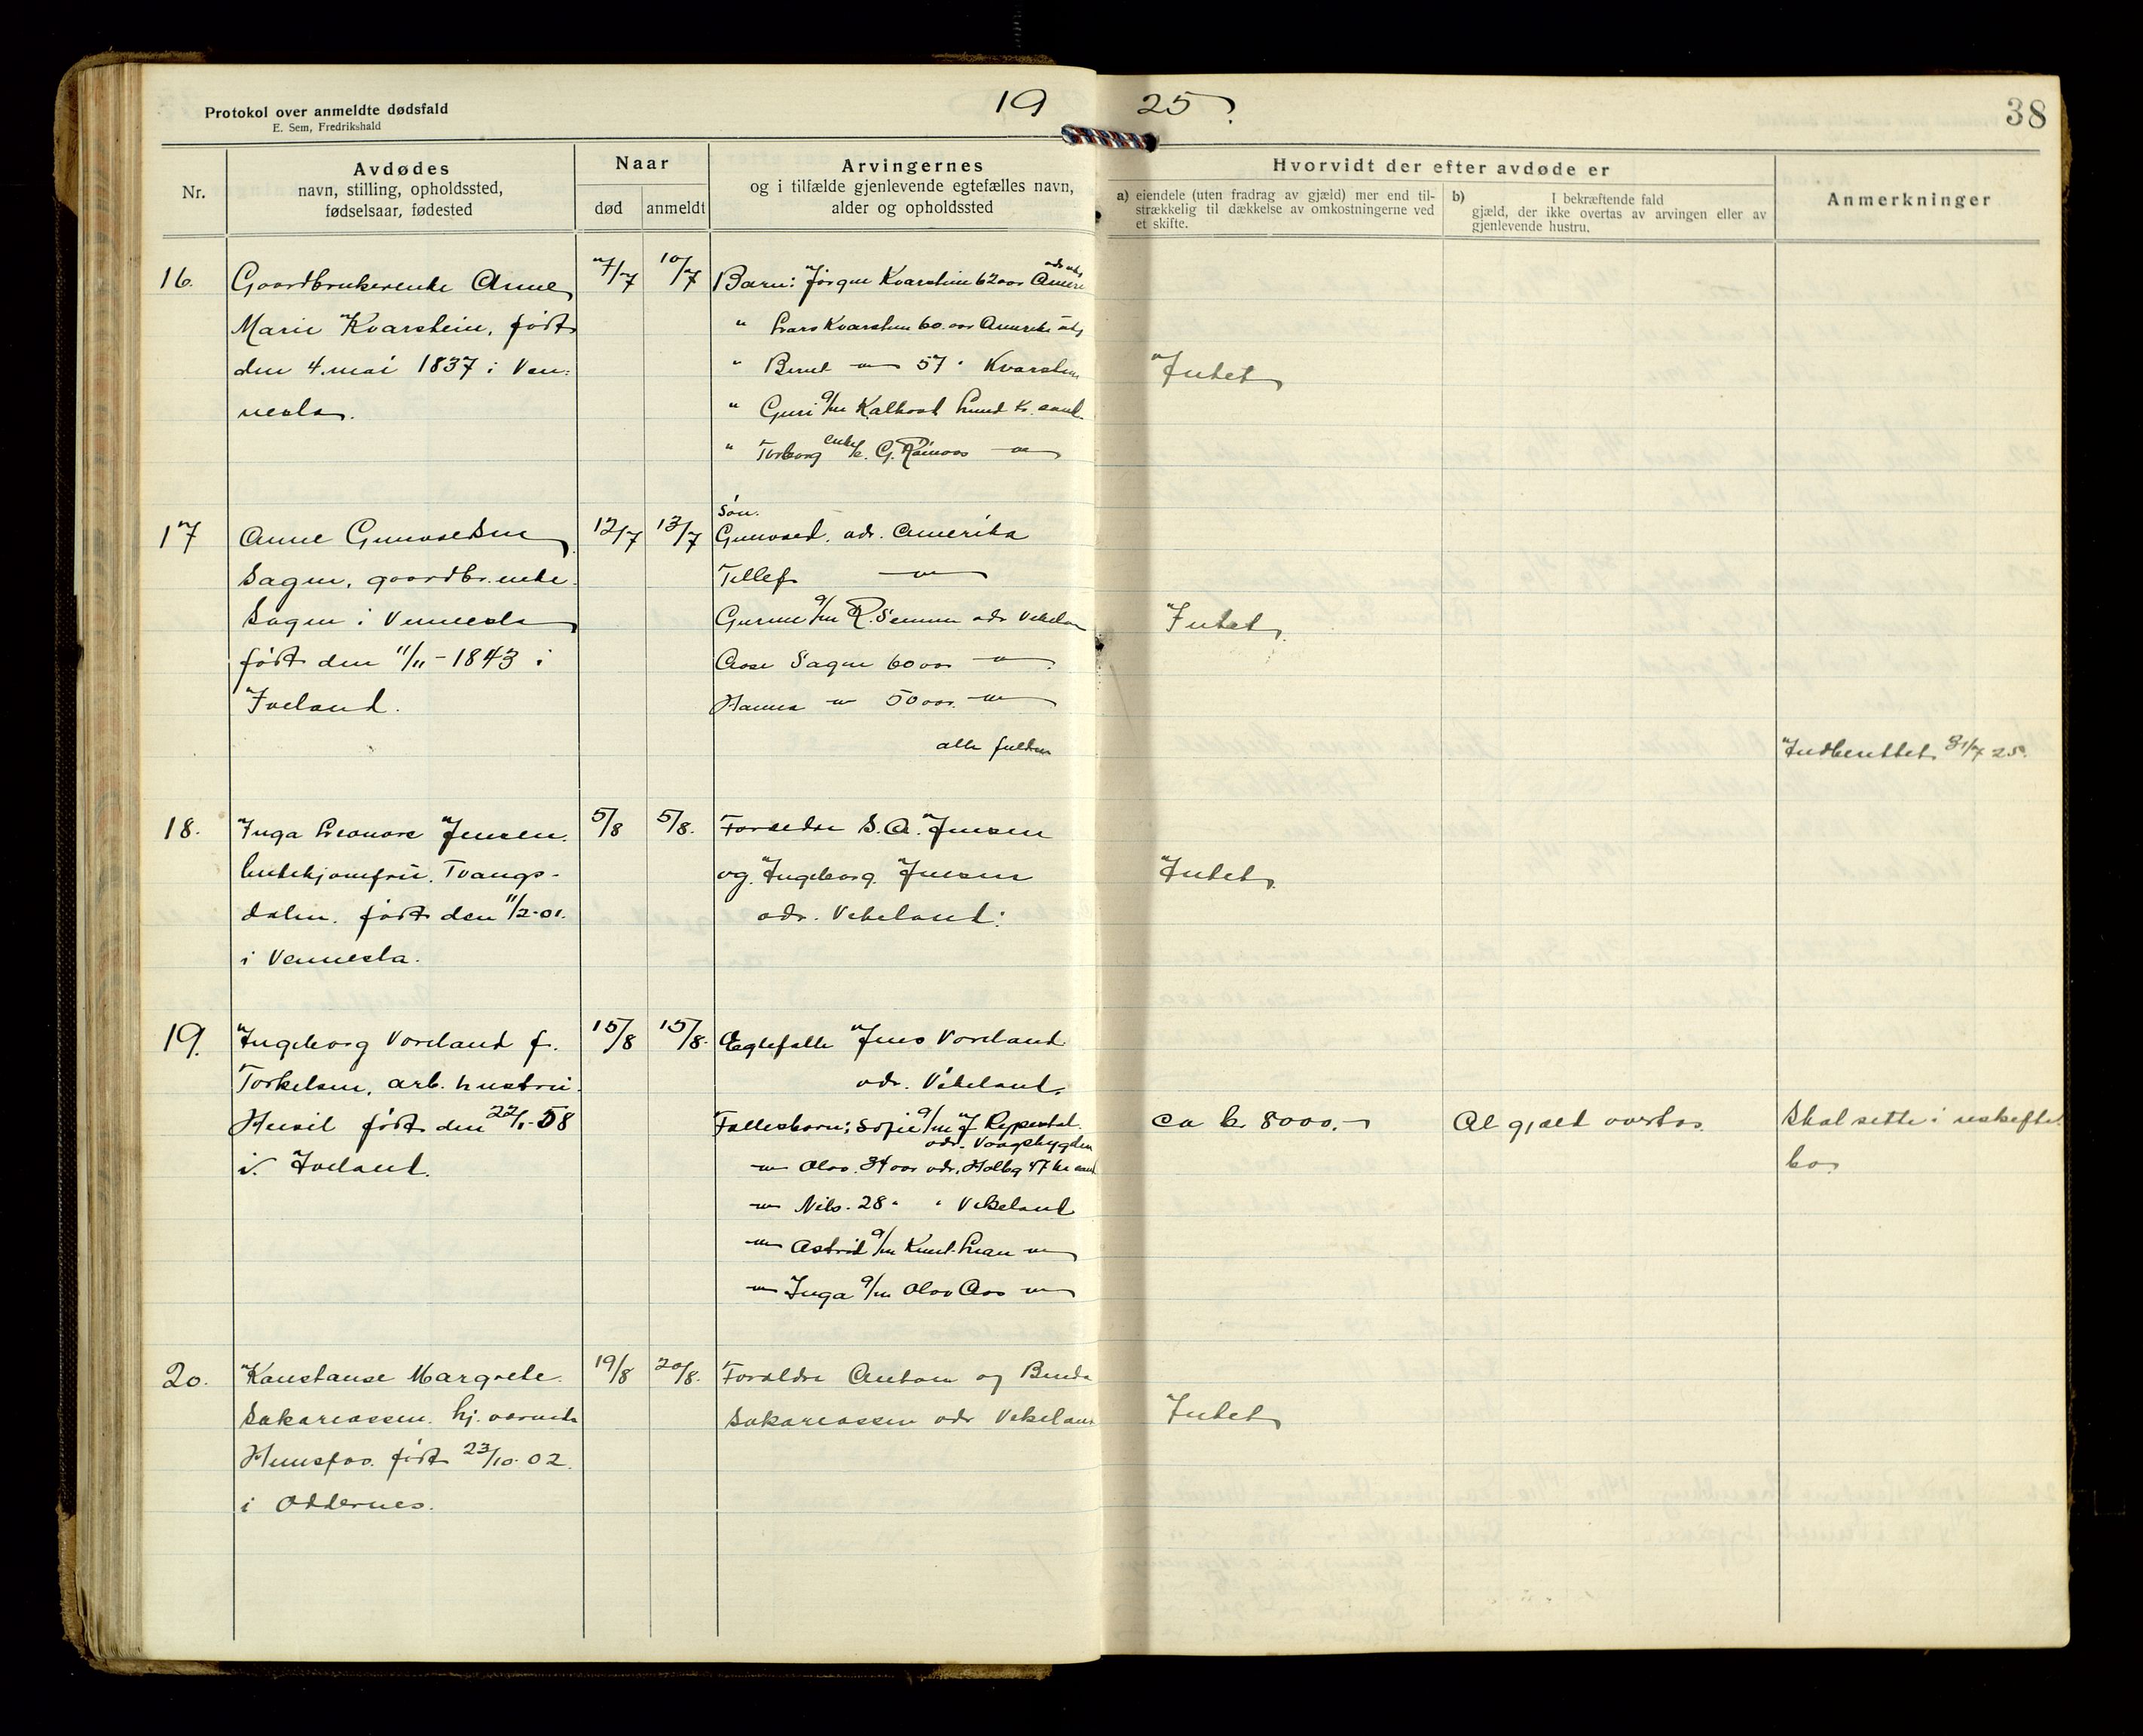 Protokol over anmeldte dødsfald
E. Sem, Fredrikshald
19 25
38
Nr.
Avdødes
navn, stilling, opholdssted,
fødselsaar, fødested
Naar
død
anmeldt
Arvingernes
og i tilfælde gjenlevende egtefælles navn,
alder og opholdssted
Hvorvidt der efter avdøde er
a) eiendele (uten fradrag av gjæld) mer end til-
strækkelig til dækkelse av omkostningerne ved
et skifte.
b) I bekræftende fald
gjæld, der ikke overtas av arvingen eller av
gjenlevende hustru.
Anmerkninger
16. Gaardbrukerenke Anne 7/7 10/7 Barn: Jørgen Kvarstein 62 aar
Marie Kvarstein, født " Lars Kvarstein 60. aar Amerika
den 4. mai 1837 i Ven- " Bernt — 57 " Kvarstein Intet
nesla. " Guri g/m Kalhovd Lund Kr.sand
" Torborg enke e. G. —
17 Anne Gunvaldsen 12/7 13/7 Søn.
Gunvald. adr. Amerika
Sagen, gaardbr.enke Tellef —
Sagen i Vennesla Gurine g/m R. Semum adr Vikeland Intet
født den 11/11-1843 i Aase Sagen 60 aar —
Iveland. Hanna — 50 aar. —
alle
Indberettet 31/7 25.
18. Inga Leonore Jensen. 5/8 5/8. Foreldre S. A. Jensen
butikjomfru. Tvangs- og Ingeborg Jensen Intet
dalen. født den 11/2-01. adr. Vikeland.
i Vennesla.
19. Ingeborg Voreland f. 15/8 15/8. Ægtefelle Jens Voreland
Torkelsen, arb. hustru. adr. Vikeland.
Heisel født den 22/1-58 Fellesbarn: Sofie g/m J. Rypestøl. ca kr. 8000.- Al gjæld overtas Skal sitte i uskiftet
adr. Vaagsbygden
i Iveland. — Olav. 34 aar adr. Holbg 47 kr sand bo.
— Nils. 28 " " Vikeland
— Astrid g/m Knut. Lian —
— Inga g/m Olav Aas —
20. Konstanse Margrete. 19/8 20/8. Foreldre Anton og
Sakariassen. hj. værende Sakariassen adr Vikeland Intet
Hunsfos. født 23/10-02.
i Oddernes.